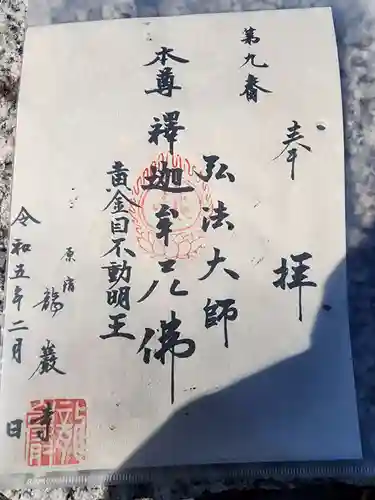 奉拝
第九番
弘法大師
本尊 釋迦牟尼佛
黄金目不動明王
原宿 龍巖寺
令和五年二月 日